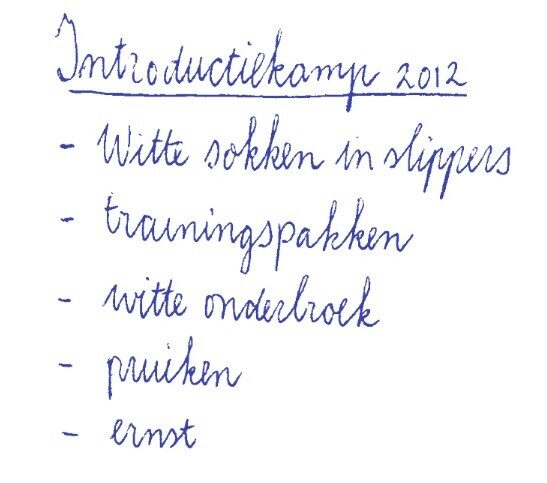 Introductiekamp 2012
- Witte sokken in slippers
- trainingspakken
- witte onderbroek
- pruiken
- ernst